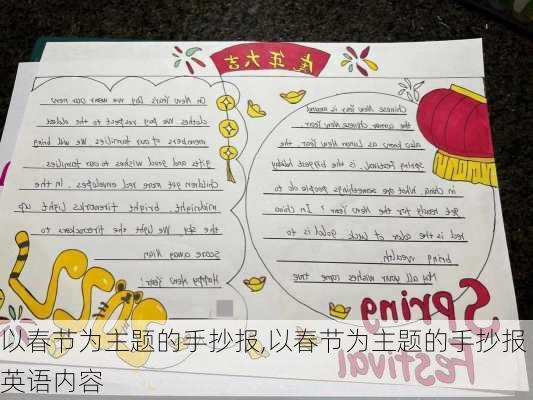 虎年大吉
Chinese New Year is around
the corner. Chinese New Year,
also known as Lunar New Year or the
Spring Festival, is the biggest holiday
in China. What are somethings people do to
get ready for the New Year? In China
red is the color of luck, gold is to
bring wealth.
May all your wishes come true
On New Years Day we wear our new
clothes. We pay the respect to the elder
members of our families. We will bring
gifts and good wishes to our families
Children get more red envelopes. In the
midnight, bright fireworks light up
the sky. We light the firecrackers to
Scare away Nian
Happy New Year!
Spring
Festival
以春节为主题的手抄报,以春节为主题的手抄报
英语内容